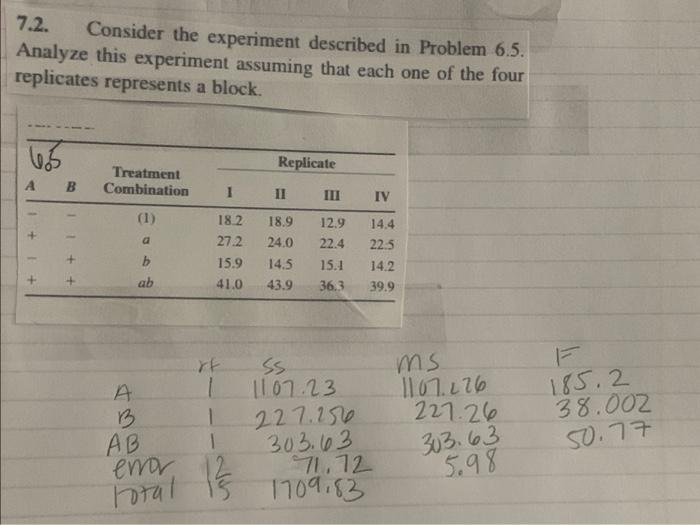 7.2. Consider the experiment described in Problem 6.5.
Analyze this experiment assuming that each one of the four
replicates represents a block.
6.5
Replicate
Treatment
A B Combination I II III IV
− − (1) 18.2 18.9 12.9 14.4
+ − a 27.2 24.0 22.4 22.5
− + b 15.9 14.5 15.1 14.2
+ + ab 41.0 43.9 36.3 39.9
SS MS F
A 1 1107.23 1107.226 185.2
B 1 227.256 227.26 38.002
AB 1 303.63 303.63 50.77
error 12 71.72 5.98
total 15 1709.83